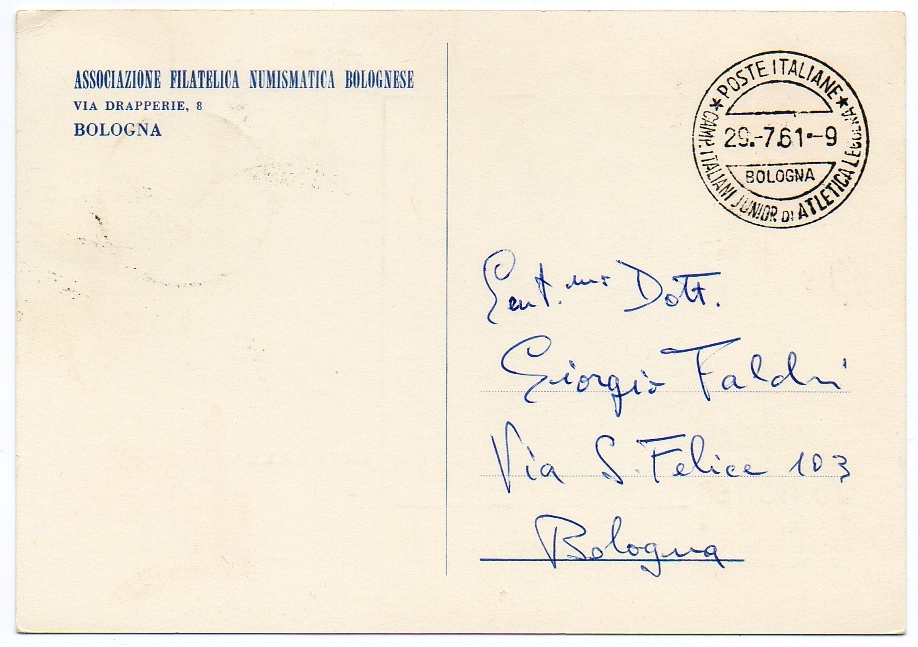 ASSOCIAZIONE FILATELICA NUMISMATICA BOLOGNESE
VIA DRAPPERIE, 8
BOLOGNA
★ POSTE ITALIANE ★
29.-7.61.-9
BOLOGNA
CAMP. ITALIANI JUNIOR DI ATLETICA LEGGERA
Gent.mo Dott.
Giorgio Faldri
Via S. Felice 103
Bologna